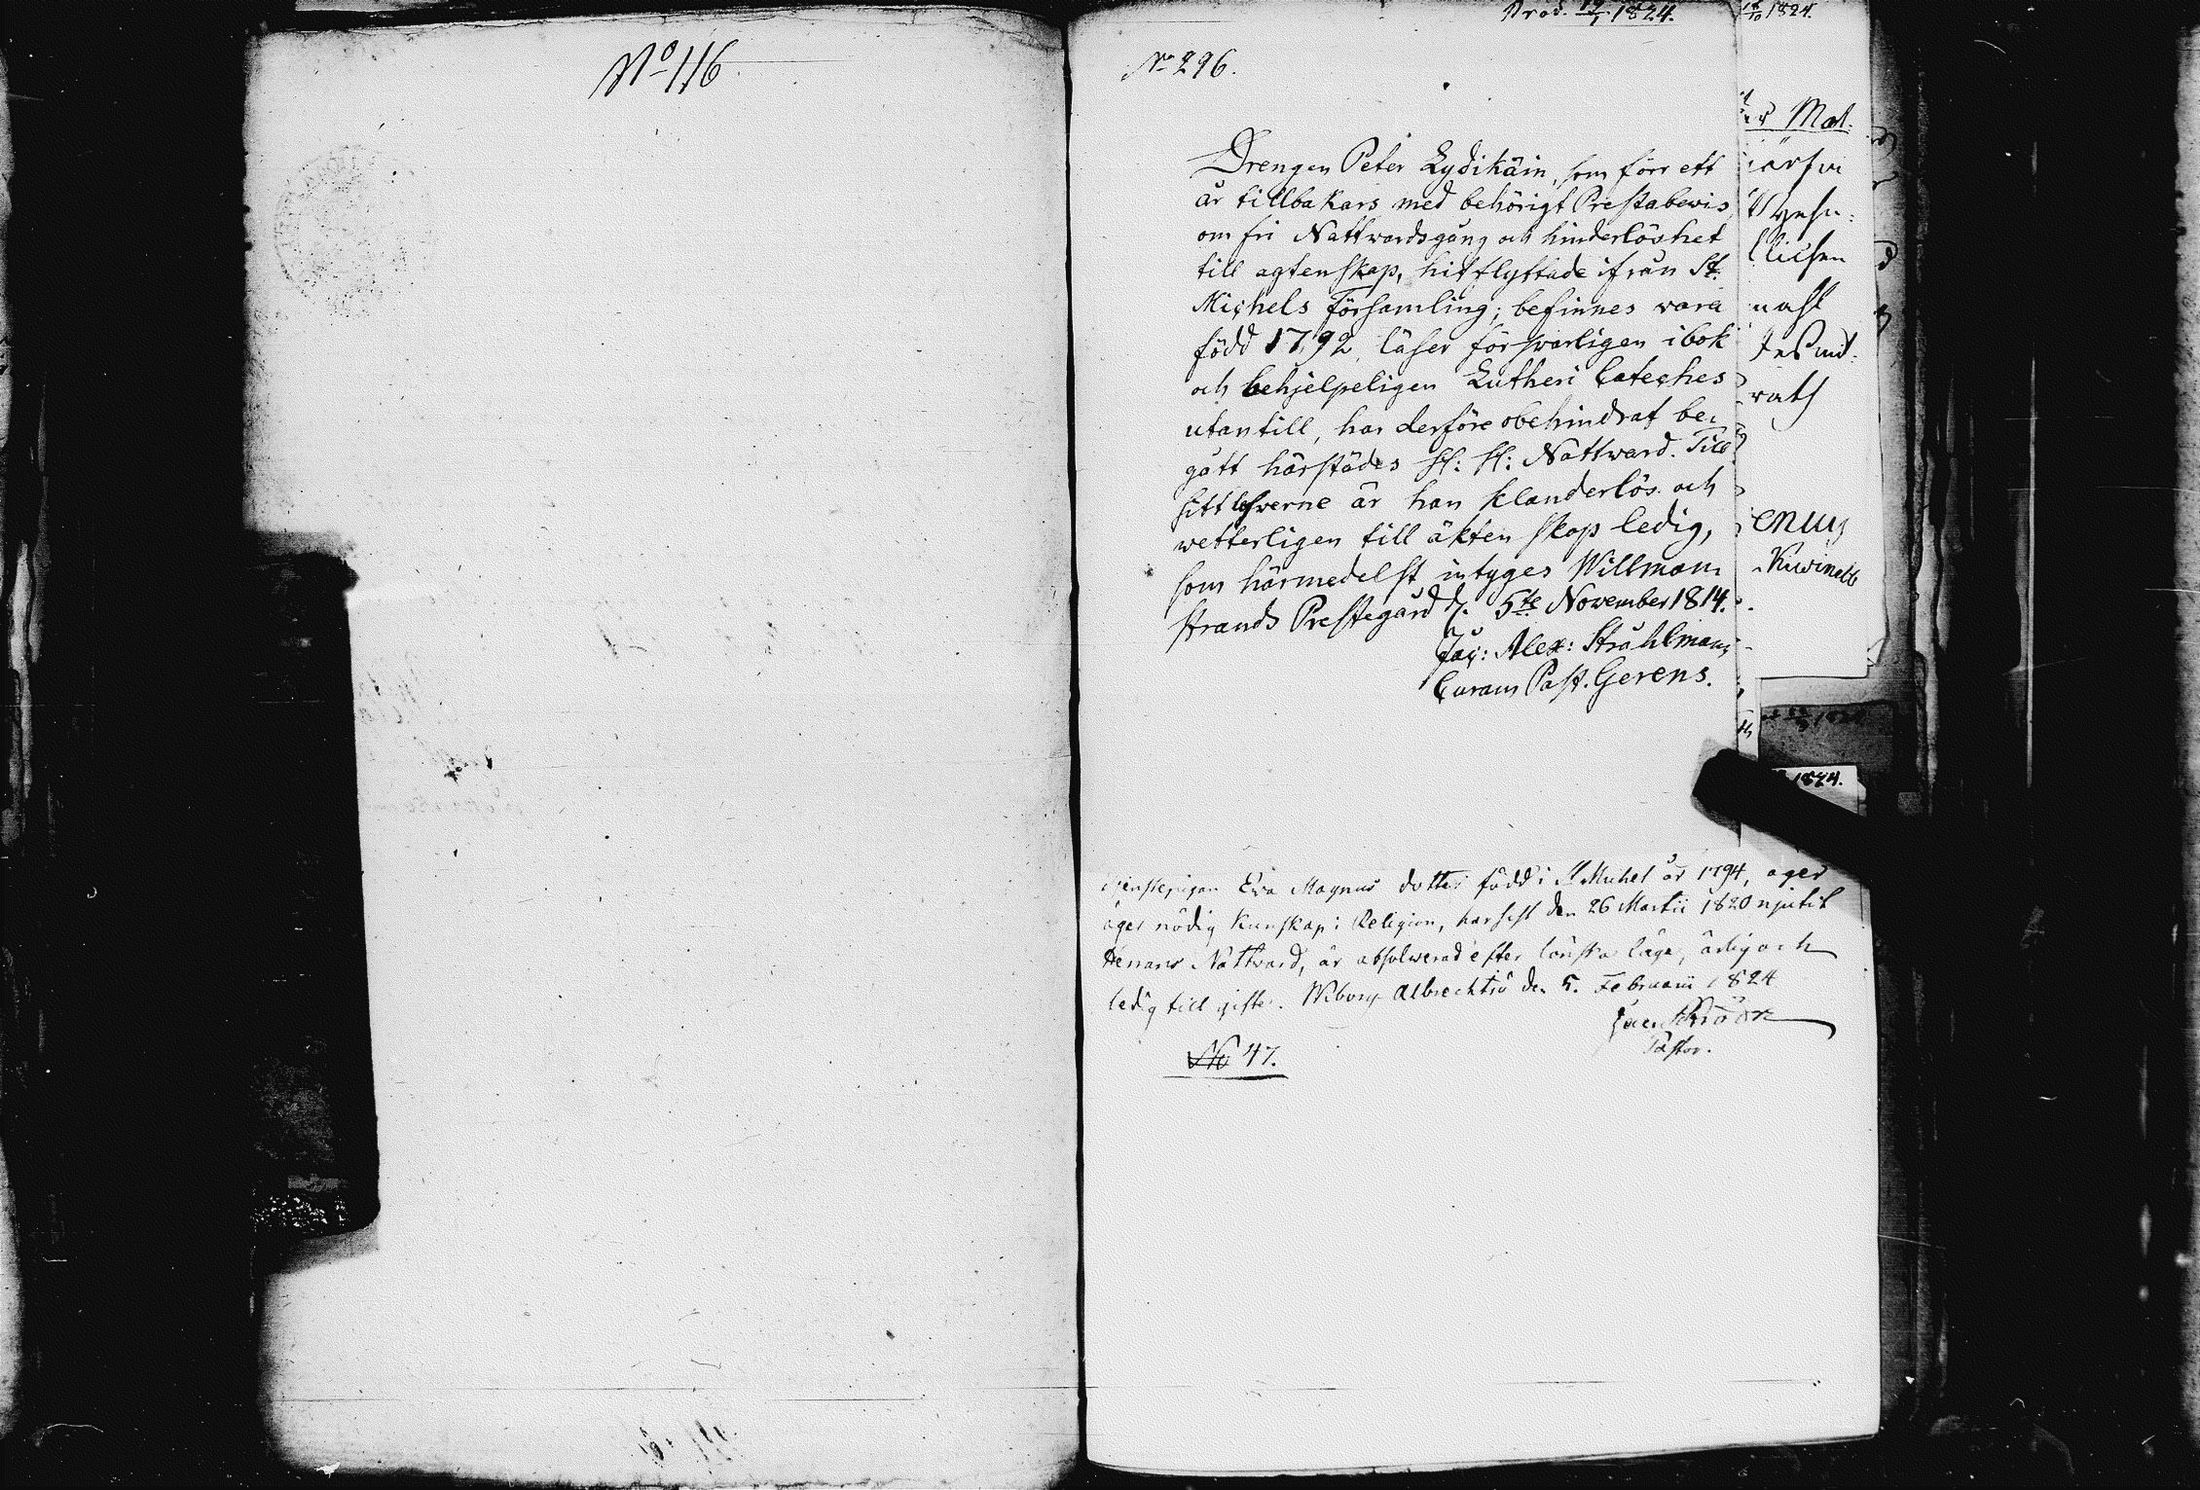 No 116
Prod. 19/1 1824.
No 296.
Drengen Peter Lydikäin, som förr ett
år tillbakars med behörigt Prestabewis
om fri Nattwardsgång och hinderlöshet
till agtenskap, hitflyttade ifrån St.
Michels Församling; befinnes wara
född 1792, läser förswarligen i bok
och behjelpeligen Lutheri Cateches
utantill, har derföre obehindrat be-
gått härstädes H: H: Nattward. Till
sitt lefwerne är han klanderlös och
wetterligen till äktenskap ledig,
som härmedelst intyges Willman-
strands Prestegård d. 5te November 1814.
Jac: Alex: Stråhlman
Curam Past. Gerens.
Eva Magnus dotter född i St Michel år 1794, äger
äger nödig Kunskap i Religion, har sist den 26 Martii 1820 njutit
Herrans Nattvard, är absolwerad efter lönska läge, ärlig och
ledig till gifte. Wiborg Albrechtsö den 5. Februarii 1824
Pastor.
No 47.
10 1824.
Mat.
nast
rats
enius
1824.